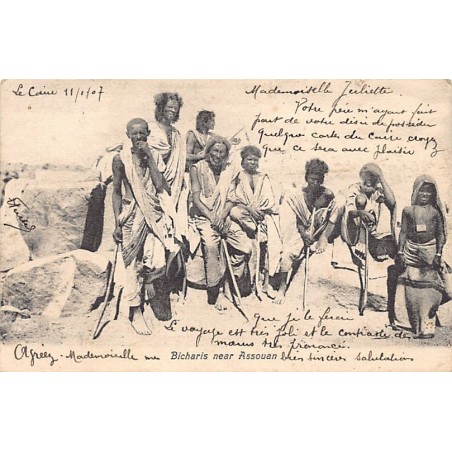 Le Caire 11/1/07
Mademoiselle Juliette
Votre père m'ayant fait
part de votre désir de posséder
quelque carte du Caire croyez
que ce sera avec plaisir
que je le ferai
Le voyage est très joli et le contraste des
mœurs très prononcé.
Agréez - Mademoiselle mes
Bicharis near Assouan
très sincères salutations